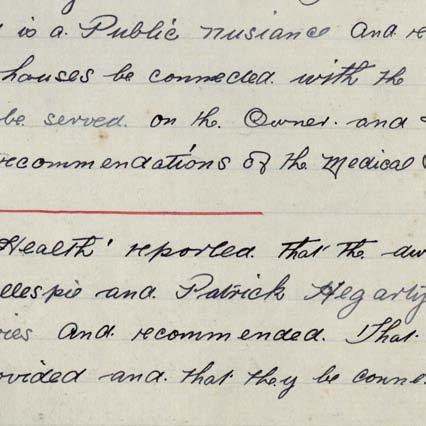 is a Public nusiance and re
houses be connected with the
be served on the Owner and
recommendations of the Medical
Health' reported that the dw
llespie and Patrick Hegarty
ries and recommended That
ovided and that they be conne